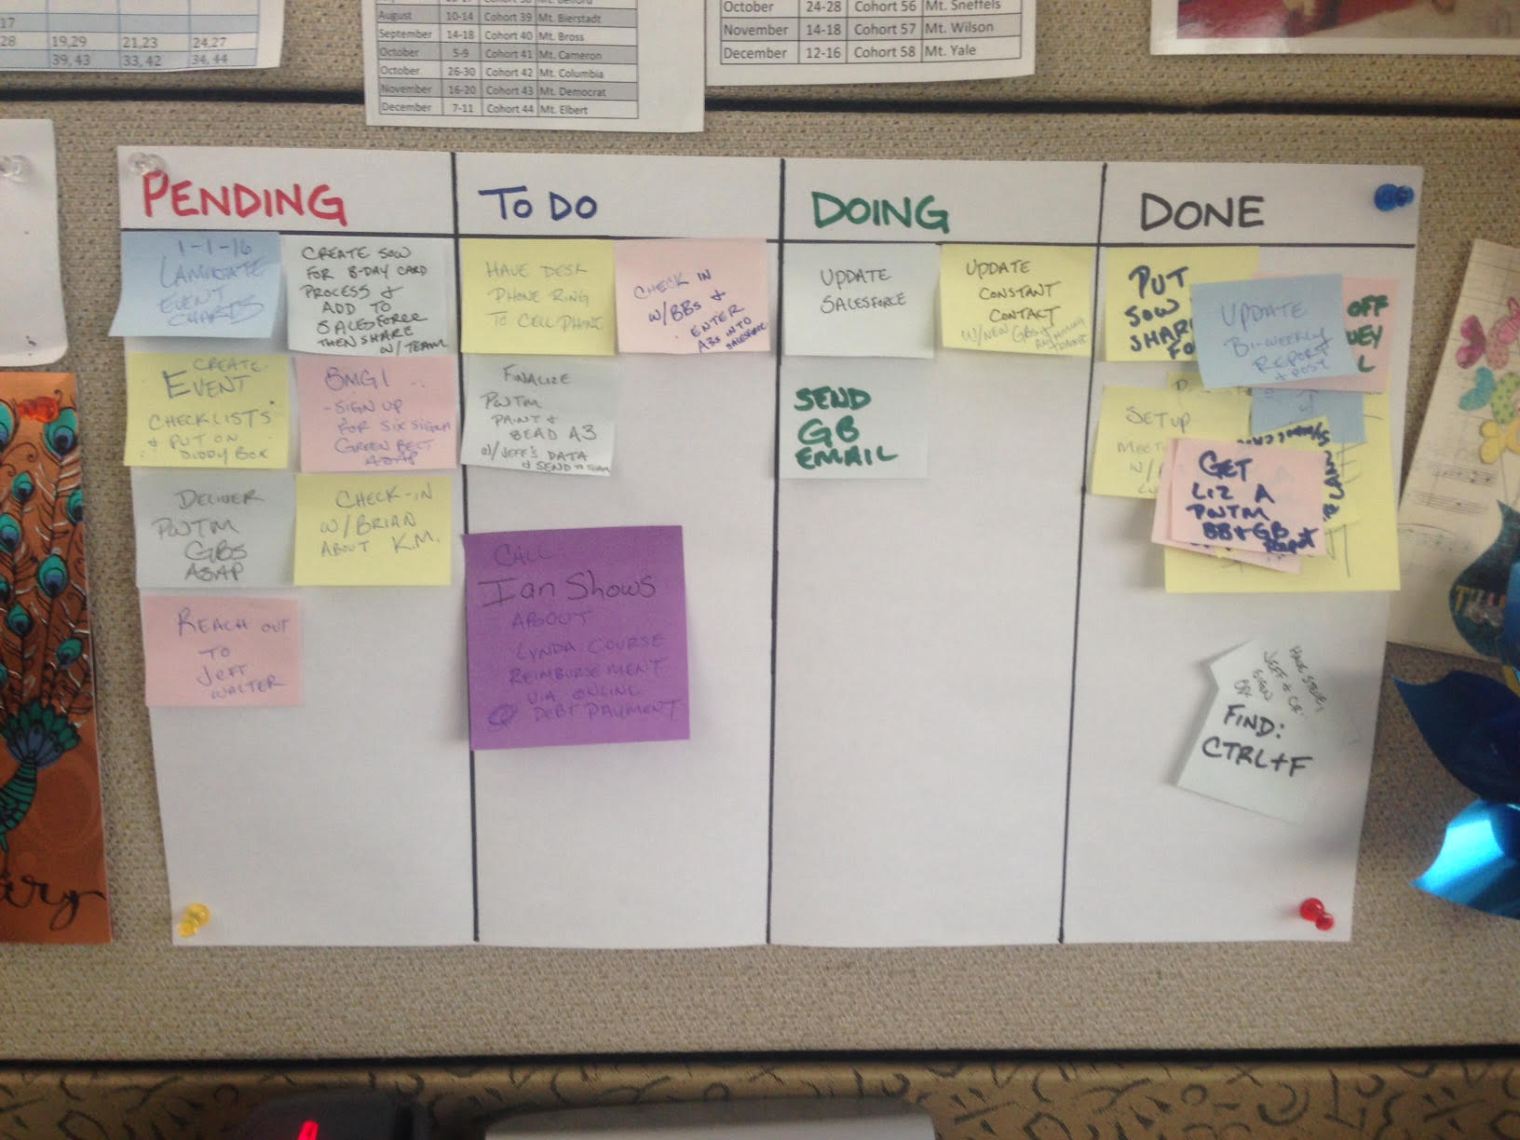 17
28 19,29 21,23 24,27
39, 43 33, 42 34, 44
August 10-14 Cohort 39 Mt. Bierstadt
September 14-18 Cohort 40 Mt. Bross
October 5-9 Cohort 41 Mt. Cameron
October 26-30 Cohort 42 Mt. Columbia
November 16-20 Cohort 43 Mt. Democrat
December 7-11 Cohort 44 Mt. Elbert
October 24-28 Cohort 56 Mt. Sneffels
November 14-18 Cohort 57 Mt. Wilson
December 12-16 Cohort 58 Mt. Yale
PENDING
1-1-16
LAMINATE
EVENT
CHARTS
CREATE SOW
FOR 8-DAY CARD
PROCESS &
ADD TO
SALESFORCE
THEN SHARE
W/ TEAM
CREATE
EVENT
CHECKLISTS
& PUT ON
DIDDY BOX
BMGI
- SIGN UP
FOR SIX SIGMA
GREEN BELT
ASAP
DELIVER
PWTM
GBS
ASAP
CHECK-IN
W/BRIAN
ABOUT K.M.
REACH OUT
TO
JEFF
WALTER
TO DO
HAVE DESK
PHONE RING
TO CELL PHONE
CHECK IN
W/BBS &
ENTER
A3S INTO
SALESFORCE
FINALIZE
PWTM
PAINT &
BEAD A3
W/JEFF'S DATA
& SEND TO TEAM
CALL
Ian Shows
ABOUT
LYNDA COURSE
REIMBURSEMENT
VIA ONLINE
DEBT PAYMENT
DOING
UPDATE
SALESFORCE
UPDATE
CONSTANT
CONTACT
W/NEW GBS &
SEND
GB
EMAIL
DONE
PUT
SOW
SHAR
FO
UPDATE
BI-WEEKLY
REPORT
& POST
OFF
L
SETUP
MEET
W/
GET
LIZ A
PWTM
BB & GB
REPORT
JEFF &
SIGN
FIND:
CTRL+F